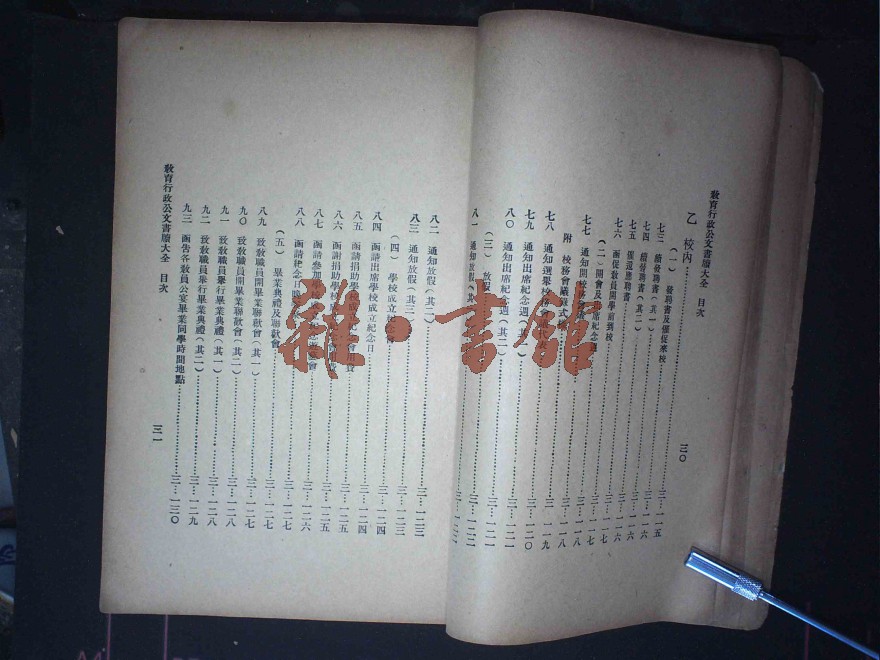 教育行政公文書牘大全 目次
三〇
乙 校內
(一) 發聘書及催促來校
七三 續發聘書(其一)……三…一一五
七四 續發聘書(其二)……三…一一六
七五 催還應聘書……三…一一六
七六 函促教員開學前到校……三…一一七
(二)開會及出席紀念週……三…一一七
七七 通知開校務會議……三…一一八
附 校務會議議程式……三…一一八
七八 通知選舉校……三 一一九
七九 通知出席紀念週(其一)……三…一二〇
八〇 通知出席紀念週(其二)……三…一二一
(三) 放假……三…一二一
八一 通知放假(其一)……三…一二二
八二 通知放假(其二)……三…一二三
八三 通知放假(其三)……三…一二三
(四) 學校成立紀念……三…一二四
八四 函請出席學校成立紀念日……三…一二四
八五 函請捐助學校成立紀念會用費……三…一二五
八六 函謝捐助學校……三…一二五
八七 函請參加學校成立紀念……三…一二六
八八 函請紀念日……三…一二七
(五) 畢業典禮及聯歡會……三…一二七
八九 致教職員開畢業聯歡會(其一)……三…一二七
九〇 致教職員開畢業聯歡會(其二)……三…一二八
九一 致教職員舉行畢業典禮(其一)……三…一二八
九二 致教職員舉行畢業典禮(其二)……三…一二九
九三 函告各教員公宴畢業同學時間地點……三…一三〇
教育行政公文書牘大全 目次
三一
雜·書館